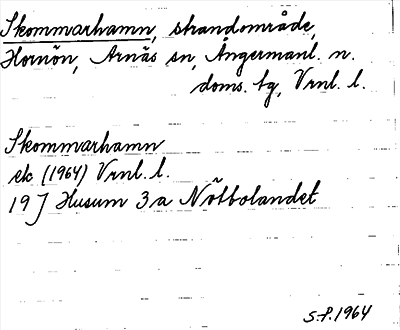 Skommarhamn, strandområde,
Hornön, Arnäs sn, Ångermanl. n.
doms. tg, Vrnl. l.
Skommarhamn
ek (1964) Vrnl. l.
19 J Husum 3 a Nötbolandet
S.P. 1964